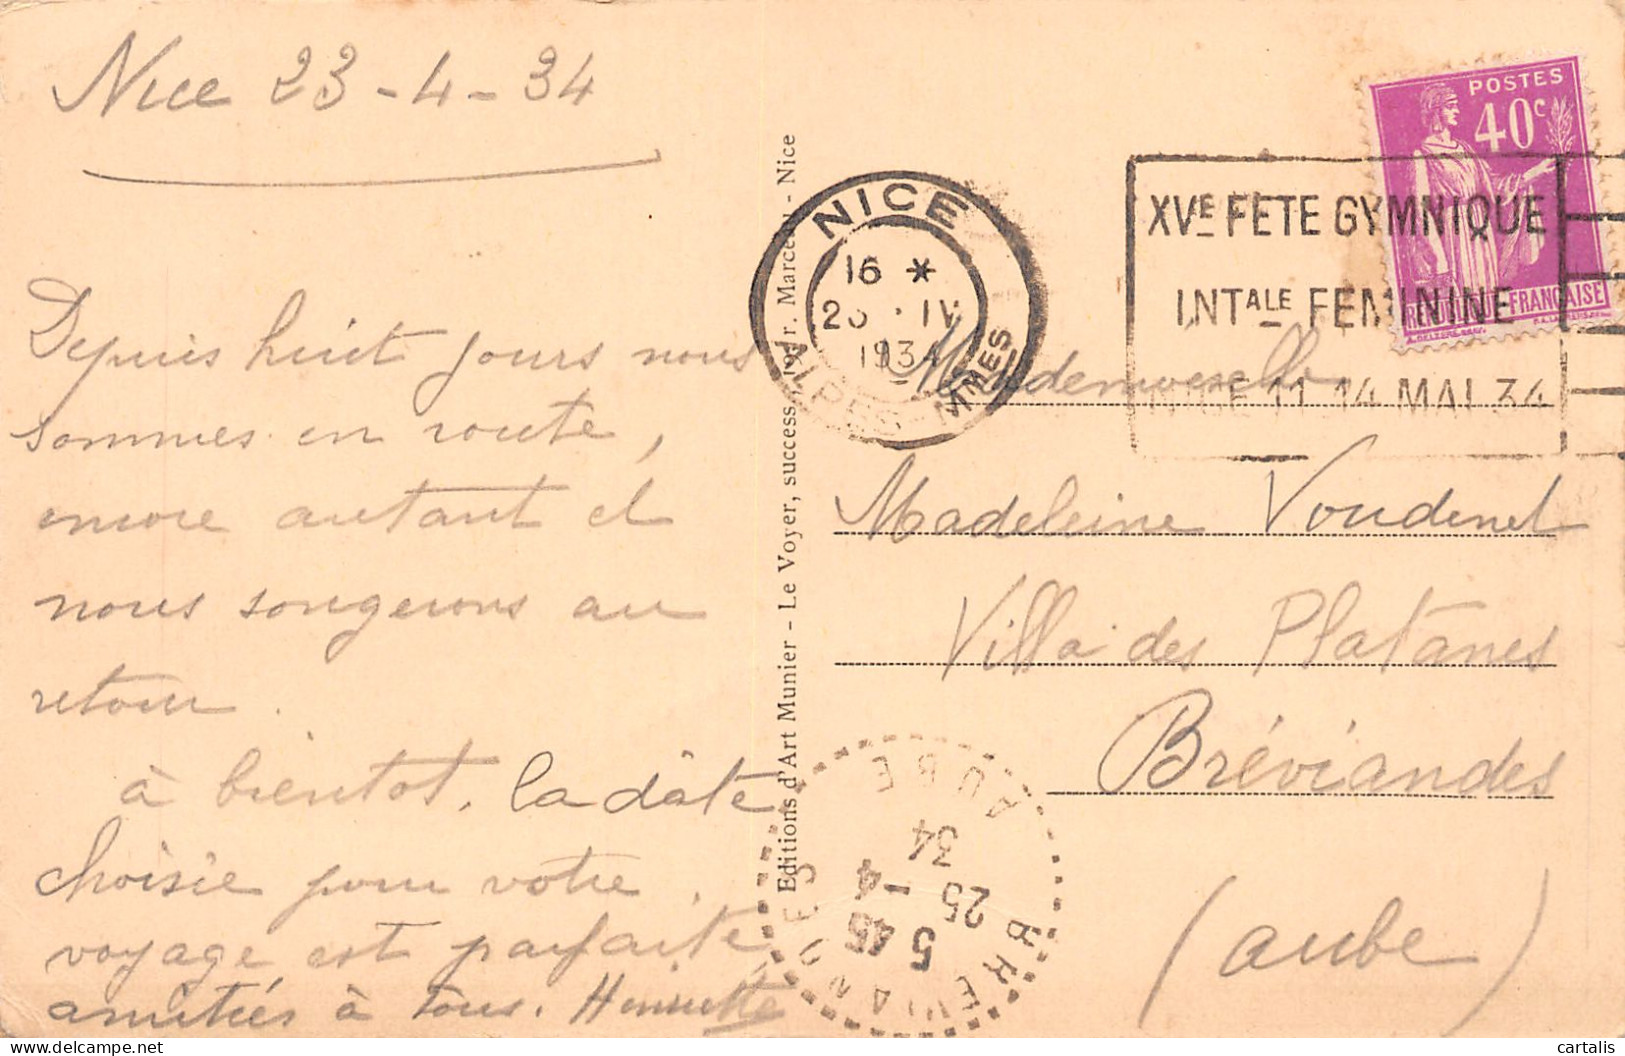 Nice 23-4-34
Depuis huit jours nous
sommes en route,
encore autant et
nous songerons au
retour.
à bientôt, la dâte
choisie pour votre
voyage est parfaite,
amitiés à tous. Henriette
Editions d'Art Munier - Le Voyer, success Marcel - Nice
NICE
16 *
IV
1934
ALPES-MMES
XVE FETE GYMNIQUE
INTALE FEMININE
NICE 11 14 MAI 34
POSTES
40c
FRANÇAISE
Mademoiselle
Madeleine Voudenet
Villa des Platanes
Bréviandes
(aube)
BREVIANDES
5 45
25 -4
34
AUBE
cartalis